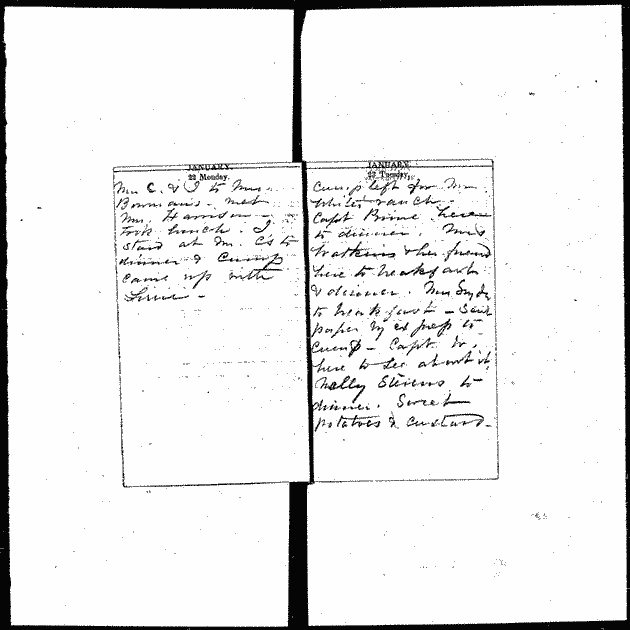 JANUARY.
22 Monday.
Mr. C. & I to Mrs.
Bowman's - met
Mrs. Harrison -
Took lunch. I
staid at Mr. C's to
dinner & Cump
came up with
JANUARY.
23 Tuesday.
Cump left for Mr.
White's ranch -
Capt. here
to dinner. Mrs
Watkins & her friend
here to breakfast
& dinner. Mrs Snyder
to breakfast - Sent
paper by ex press to
Cump - Capt. W.
here to see about it.
Nelly Stevens to
dinner. Sweet
potatoes & custard -